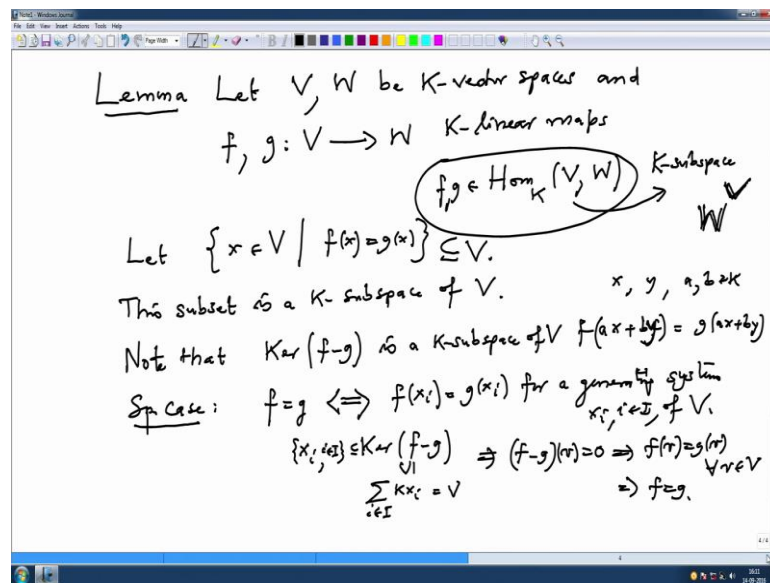 Note1 - Windows Journal
File Edit View Insert Actions Tools Help
Page Width
Lemma Let V, W be K-vector spaces and
f, g : V → W K-linear maps
f, g ∈ Hom_K (V, W) K-subspace
W^V
Let { x ∈ V | f(x) = g(x) } ⊆ V.
This subset is a K-subspace of V. x, y, a, b ∈ K
Note that Ker (f-g) is a K-subspace of V f(ax + by) = g(ax+by)
Sp case : f = g ⟺ f(x_i) = g(x_i) for a generating system
x_i, i ∈ I, of V.
{x_i, i∈I} ⊆ Ker (f-g) ⇒ (f-g)(v) = 0 ⇒ f(v) = g(v)
∀ v ∈ V
∑_{i∈I} K x_i = V ⇒ f = g.
4/4
4
16:11
14-09-2016